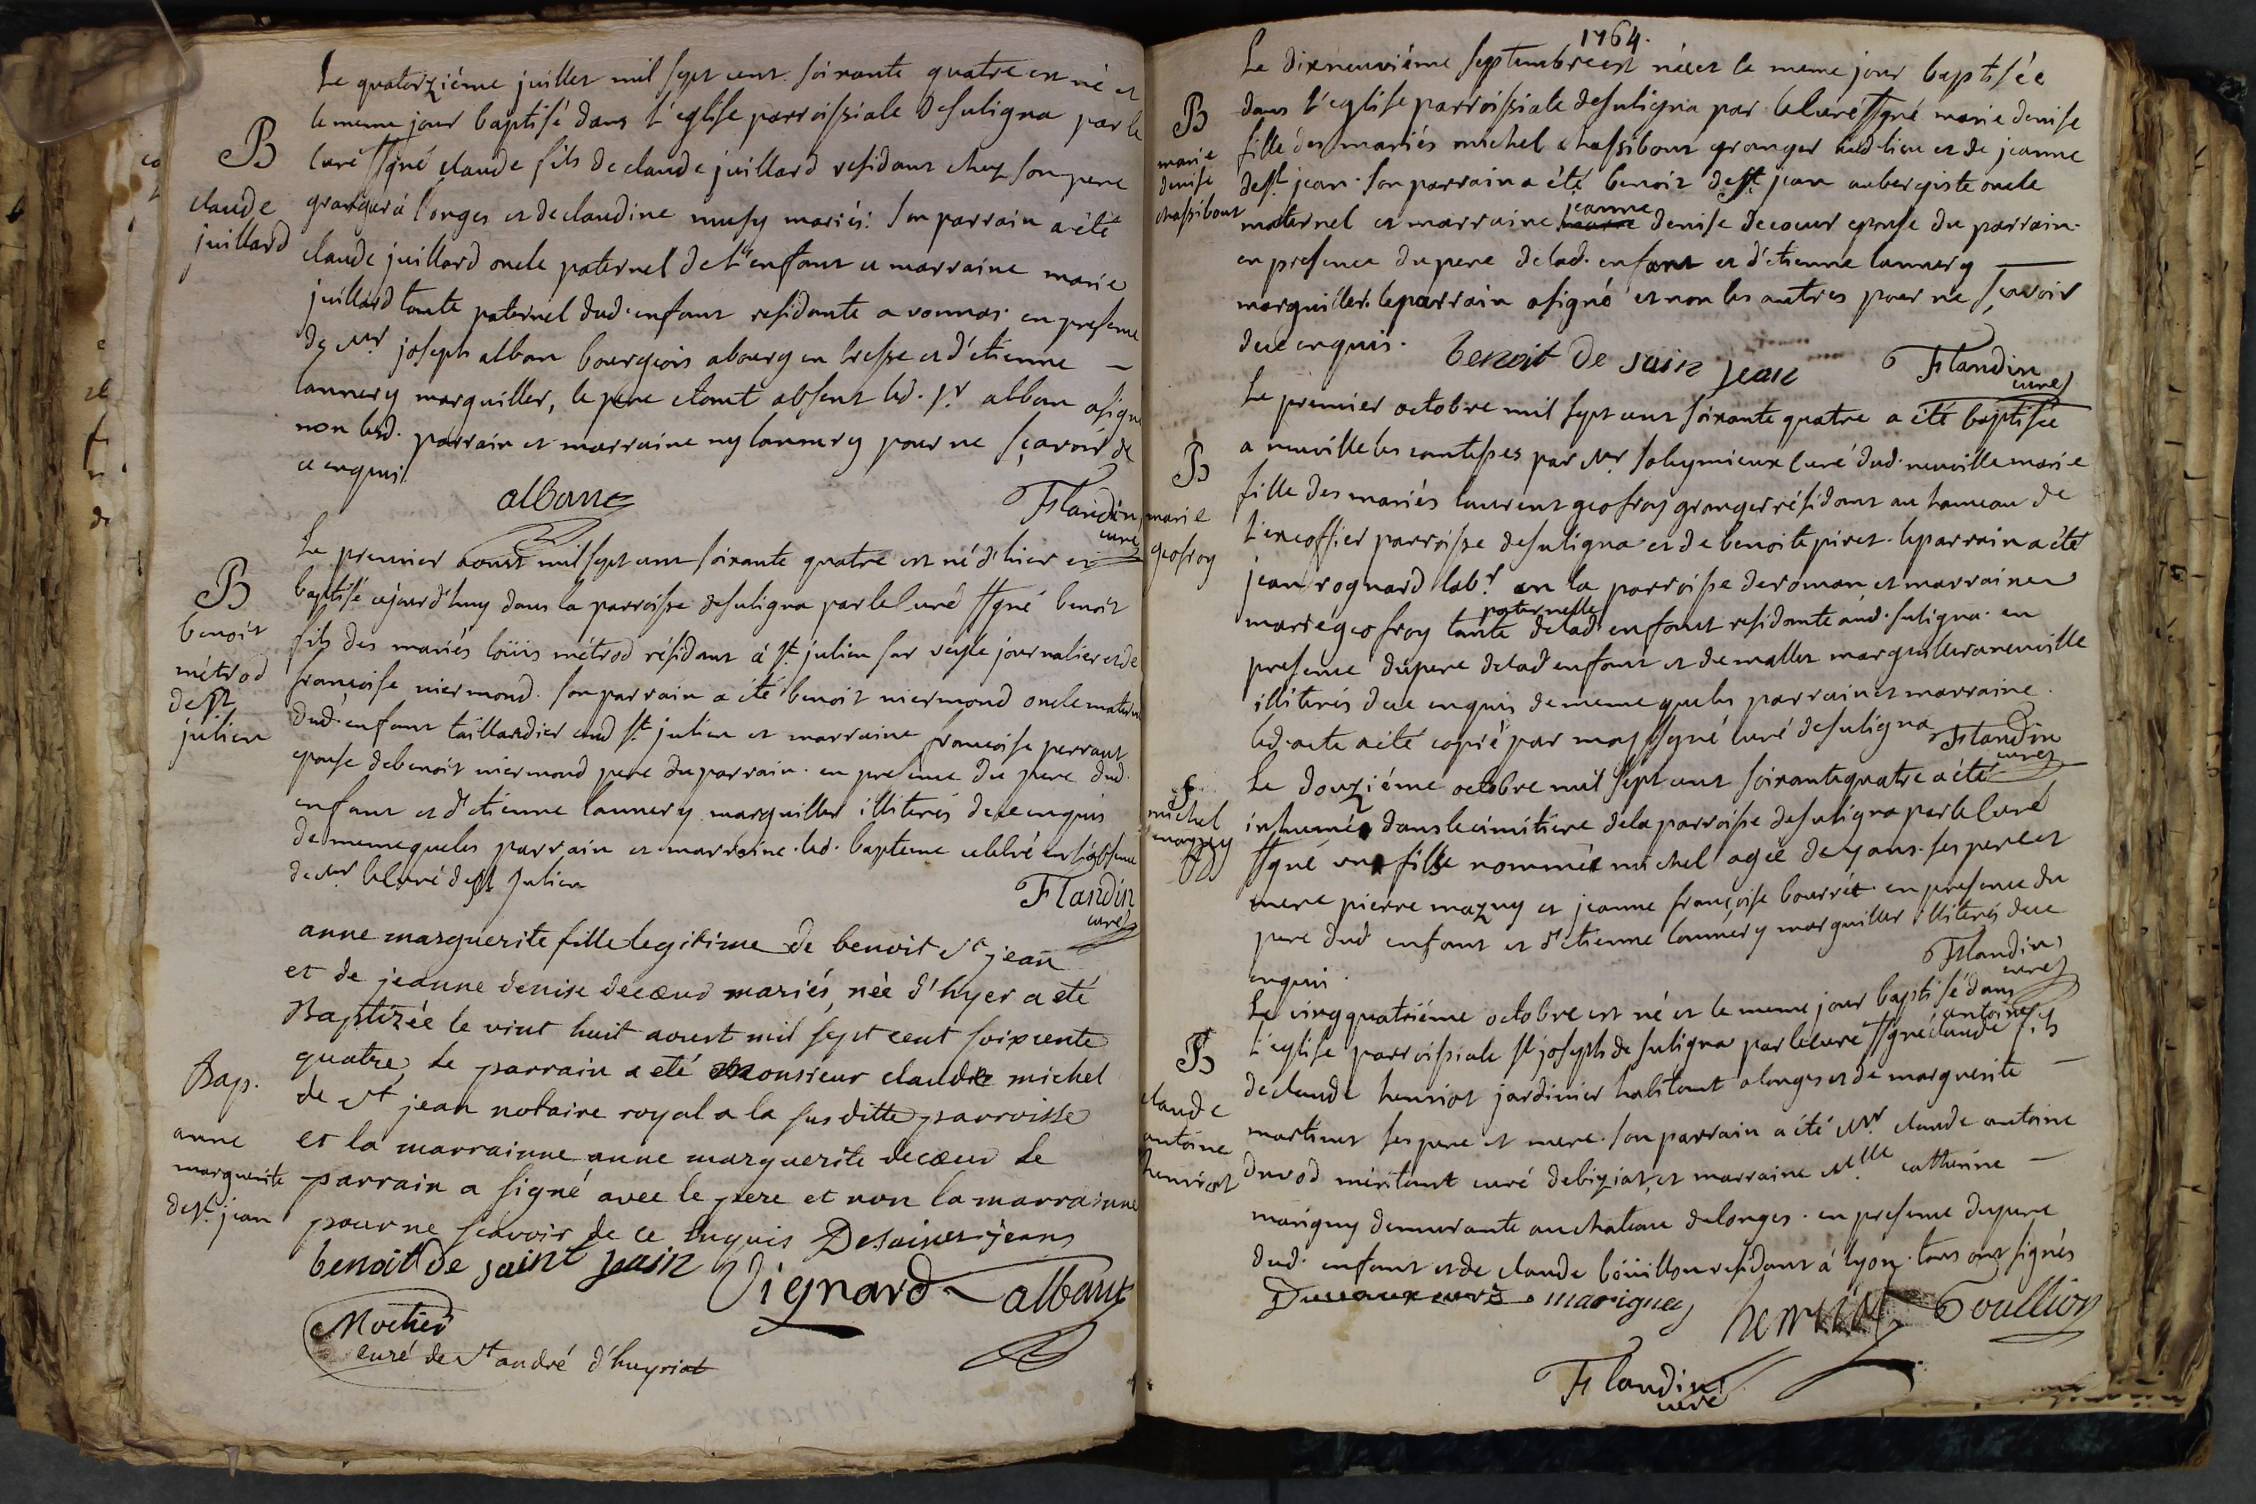 Le quatorziéme juillet mil sept cent soixante quatre est né et
le meme jour baptisé dans l'eglise parroissiale de suligna par le
B
curé ssgné claude fils de claude juillard residant chez son pere
claude
juillard
granger à longes et de claudine musy mariés. son parrain a été
claude juillard oncle paternel de l'enfant et marraine marie
juillard tante paternel dud. enfant residante a vonnas. en presence
de Mr joseph alban bourgeois a bourg en bresse et d'etienne
lannery marguiller, le pere etant absent led. sr alban a signé
non lesd. parrain et marraine ny lannery pour ne sçavoir de
ce enquis
albanne
Flandin
curé
Le premier aoust mil sept cent soixante quatre est né d'hier et
B
benoit
métrod
de st
julien
baptisé cejourd'huy dans la parroisse de suligna par le curé ssgné benoit
fils des mariés loüis métrod résidant à st julien sur veyle journalier et de
françoise niermond. son parrain a été benoit niermond oncle maternel
dud. enfant taillandier aud st julien et marraine françoise perraut
epouse de benoit niermond pere du parrain. en presence du pere dud.
enfant et d'etienne lannery marguiller illiterés de ce enquis
de meme que les parrain et marraine. led. bapteme celebré en l'absence
de Mr le curé de st Julien
Flandin
curé
anne marguerite fille legitime de benoit st jean
et de jeanne denise decœur mariés, née d'hyer a eté
Baptizée le vint huit aoust mil sept cent soixente
Bap.
anne
marguerite
de st. jean
quatre, le parrain a eté Monsieur claude michel
de st jean notaire royal a la sus ditte parroisse
et la marrainne anne marguerite decœur le
parrain a signé avec le pere et non la marrainne
pour ne scavoir de ce enquis Desaint jean
benoit de saint jean
Vignard albant
Mochier
curé de st andré d'huyriat
1764.
Le dixneuviéme septembre est née et le meme jour baptisée
B
marie
denise
chassibout
dans l'eglise parroissiale de suligna par le curé ssgné marie denise
fille des mariés michel chassibout granger aud lieu et de jeanne
de st. jean. son parrain a été benoit de st. jean aubergiste oncle
maternel et marraine jeanne denise decœur epouse du parrain.
en presence du pere de lad. enfant et d'etienne lannery
marguiller. le parrain a signé et non les autres pour ne sçavoir
de ce enquis.
benoit de sain jean
Flandin
curé
Le premier octobre mil sept cent soixante quatre a été baptisée
B
marie
geofroy
a neuville les comtesses par Mr soleymieux curé dud. neuville marie
fille des mariés laurent geofroy granger résidant au hameau de
l'excoffier parroisse de suligna et de benoite piret. le parrain a été
jean rognard labr. en la parroisse de roman et marraine
marie geofroy tante paternelle de lad enfant residante aud. suligna. en
presence du pere de lad enfant et de mallet marguiller a neuville
illiterés de ce enquis de meme que les parrain et marraine.
led. acte a été copié par moy ssgné curé de suligna
Flandin
curé
S
michel
mazuy
Le douziéme octobre mil sept cent soixante quatre a été
inhumé dans le cimitiere de la parroisse de suligna par le curé
ssgné un fils nommé michel agée de 7 ans. ses pere et
mere pierre mazuy et jeanne françoise bourrét. en presence du
pere dud enfant et d'etienne lannery marguiller illiterés de ce
enquis.
Flandin
curé
Le vingquatriéme octobre est né et le meme jour baptisé dans
B
claude
antoine
henriot
l'eglise parroissiale st joseph de suligna par le curé ssgné claude antoine fils
de claude henriot jardinier habitant a longes et de marguerite
martinet ses pere et mere. son parrain a été Mr. claude antoine
duvod méritant curé de biziat, et marraine Mlle catherine
marigny demeurante au chateau de longes. en presence du pere
dud. enfant et de claude böüillon residant à lyon. tous ont signés
Duvaux curé marigny henriot Boullion
Flandin
curé